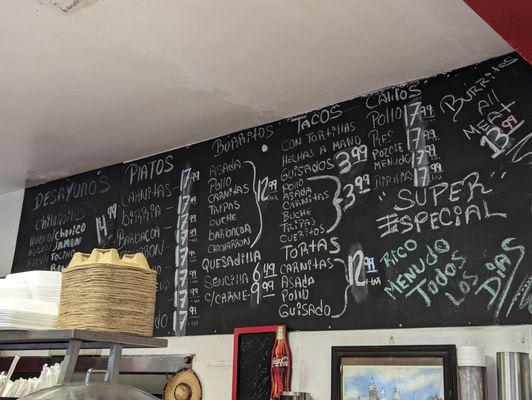 DESAYUNOS
CHILAQUILES
HUEVO Chorizo
HUEVO Jamon
14.99
PLATOS
CARNITAS 17.99
BIRRIA
BARBACOA
BURRITOS
ASADA
POLLO
CARNITAS
TRIPAS
BUCHE
BARBACOA
CHICHARRON
12.99
QUESADILLA
SENCILLA 6.49
C/CARNE 9.99
TACOS
CON TORTILLAS
HECHAS A MANO
GUISADOS 3.99
POLLO
ASADA
CARNITAS
BUCHE
TRIPAS
CUERITOS
3.99
TORTAS
CARNITAS
ASADA
POLLO
GUISADO
12.99
CALDOS
POLLO 17.99
RES 17.99
POZOLE 17.99
MENUDO 17.99
BIRRIA 17.99
BURRITOS
All
MEAT
13.99
"SUPER"
ESPECIAL
RICO MENUDO
TODOS LOS DIAS
Coca-Cola